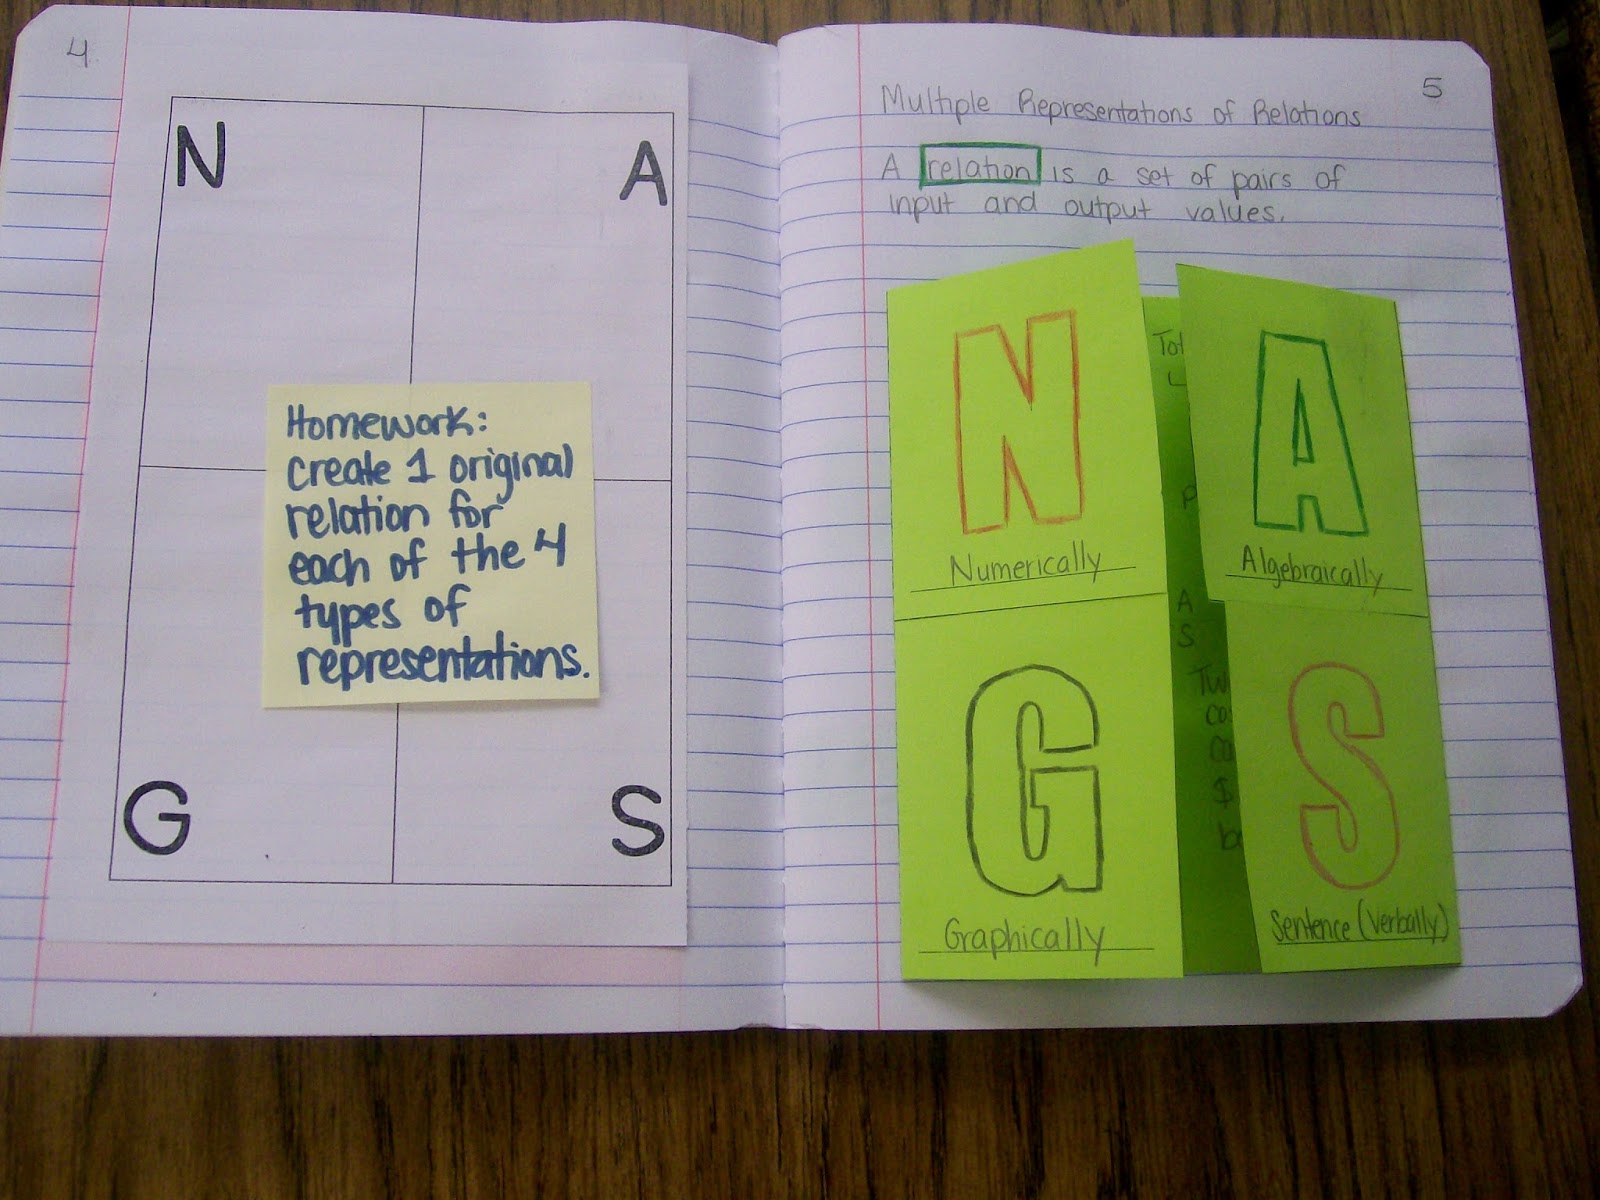 4
N
A
Homework:
create 1 original
relation for
each of the 4
types of
representations.
G
S
5
Multiple Representations of Relations
A relation is a set of pairs of
input and output values.
N
Numerically
A
Algebraically
G
Graphically
S
Sentence (Verbally)
A
S
$